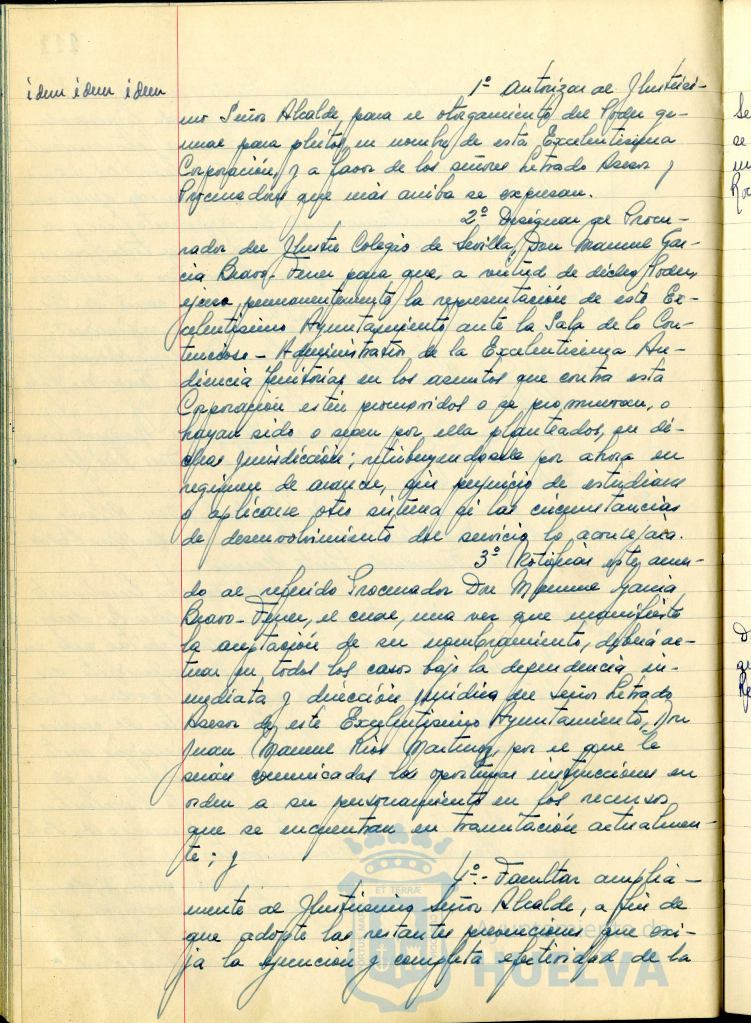 idem idem idem
1º Autorizar al Ilustrísi-
mo Señor Alcalde, para el otorgamiento del Poder ge-
neral para pleitos, en nombre de esta Excelentísima
Corporación, y a favor de los señores Letrado Asesor y
Procuradores que más arriba se expresan.
2º Designar al Procu-
rador del Ilustre Colegio de Sevilla, Don Manuel Gar-
cía Bravo-Ferrer para que, a virtud de dicho Poder,
ejerza, permanentemente la representación de este Ex-
celentísimo Ayuntamiento ante la Sala de lo Con-
tencioso-Administrativo de la Excelentísima Au-
diencia Territorial en los asuntos que contra esta
Corporación estén promovidos o se promuevan, o
hayan sido o sean por ella planteados, en di-
cha Jurisdicción; retribuyéndosele por ahora en
regimen de arancel, sin perjuicio de estudiarse
o aplicarse otro sistema si las circunstancias
de desenvolvimiento del servicio lo aconsejara.
3º Notificar este acuer-
do al referido Procurador Don Manuel García
Bravo-Ferrer, el cual, una vez que manifieste
la aceptación de su nombramiento, deberá ac-
tuar en todos los casos bajo la dependencia in-
mediata y dirección jurídica del Señor Letrado
Asesor de este Excelentísimo Ayuntamiento, Don
Juan Manuel Ríos Martínez, por el que le
serán comunicadas las oportunas instrucciones en
orden a su personamiento en los recursos
que se encuentran en tramitación actualmen-
te; y
4º.- Facultar amplia-
mente al Ilustrísimo Señor Alcalde, a fin de
que adopte las restantes prevenciones que exi-
ja la ejecución y completa efectividad de la
ET TERRÆ
HUELVA